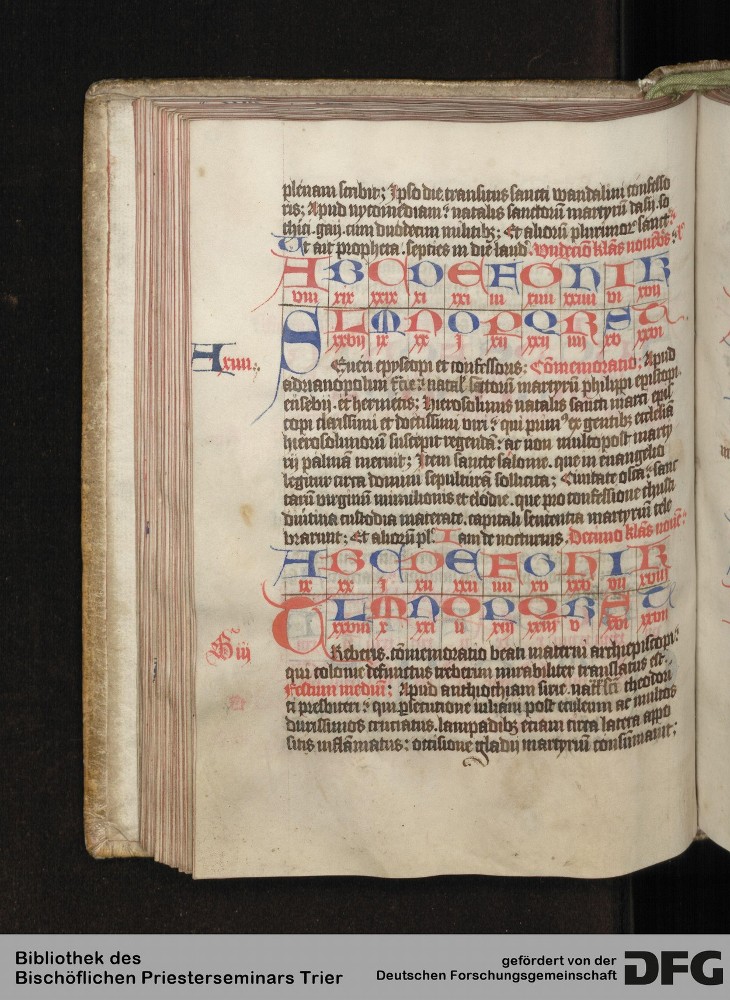 plenam scribit; Ipso die transitus sancti wandalini confesso
ris; Apud nycomediam natalis sanctorū martyrū dasij. so
thici. gaij. cum duodecim militibꝫ; Et aliorū plurimor sanct
Ut ait propheta. septies in die laud. Undecīo klās nouēbs
A B C D E F G H I K
viii xix xxix xi xxi iii xiiii xxiiii vi xvii
S L M N O P Q R S T
xxvii ix xx i xii xxi iiii xv xxvi
A xiiii.
Eueri episcopi et confessoris; Cōmemoratio; Apud
adrianopolim natal sāctorū martyrū philippi episcopi.
eusebij. et hermetis; Hierosolimis natalis sancti marci epis
copi clarissimi et doctissimi viri qui prim' ex gentibꝫ ecclesiā
hierosolimorū suscepit regendā; ac non multo post marty
rij palmā meruit; Item sancte salome. que in euangelio
legitur circa domini sepulturā sollicita; Ciuitate osca. sanc
tarū virginū nunilionis et elodie. que pro confessione christi
diutina custodia macerate. capitali sententia martyriū cele
brarunt; Et aliorū pl. Iam de nocturnis. Decimo klās nouē
A B C D E F G H I K
ix xx i xii xxii iiii xv xxv vii xviii
T L M N O P Q R S T
xxviii x xxi ii xiii xxiii v xvi xxvii
B iij
Reberis. cōmemoratio beati materni archiepiscopi.
qui colonie defunctus treberim mirabiliter translatus est.
Festum mediū; Apud anthyochiam sirie. nat sci theodori
ti presbiteri; qui psecutione iuliani post eculeum ac multos
durissimos cruciatus. lampadibꝫ etiam circa latera appo
sitis inflāmatus; occisione gladij martyriū consūmauit;
Bibliothek des
Bischöflichen Priesterseminars Trier
gefördert von der
Deutschen Forschungsgemeinschaft
DFG